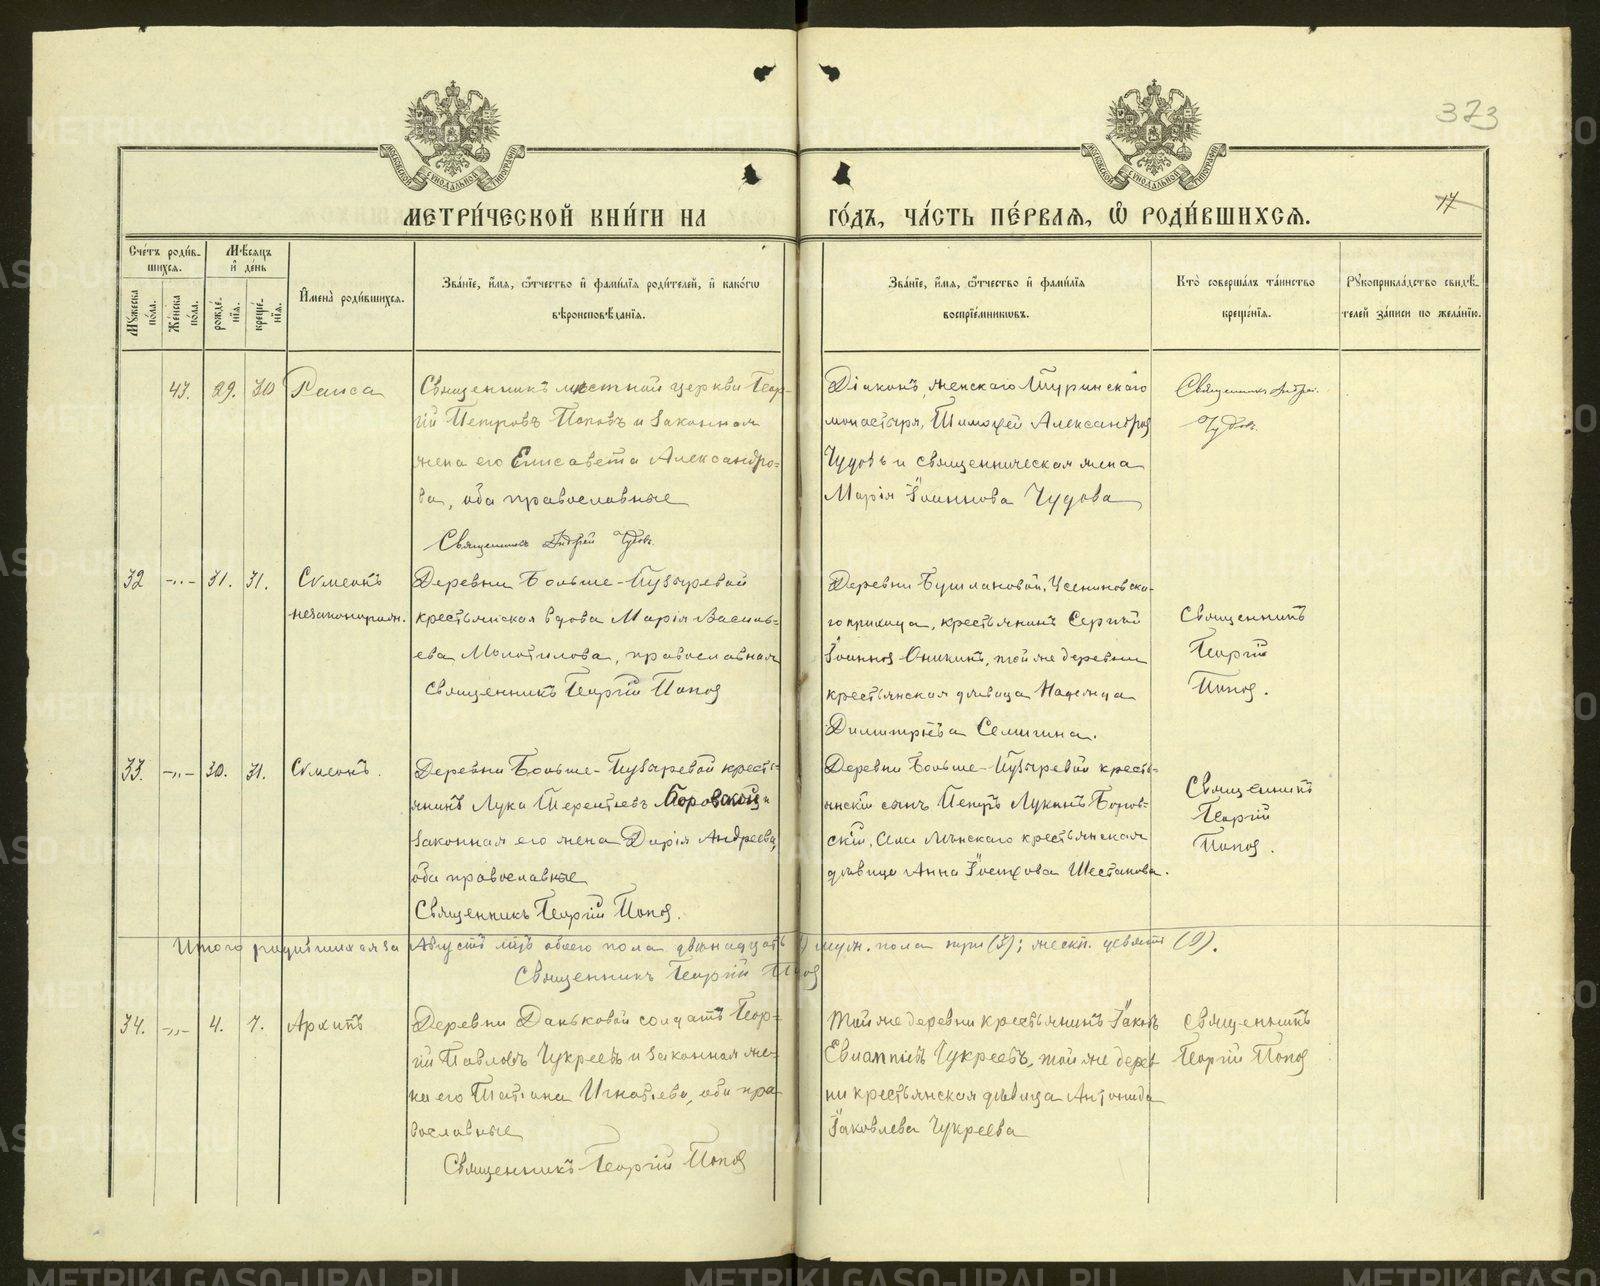 373
17
МЕТРИ́ЧЕСКОЙ КНИ́ГИ НА ГО́ДЪ, ЧА́СТЬ ПЕ́РВАЯ, Ѽ РОДИ́ВШИХСЯ.
Сче́тъ роди́в-
шихся.
Мѣ́сяцъ
и҆ де́нь
Мꙋ́жеска по́ла.
Же́нска по́ла.
рожде́-нїя.
креще́-нїя.
И҆мена̀ роди́вшихся.
Зва́нїе, и҆́мя, ѻ҆́тчество и҆ фами́лїя роди́телей, и҆ како́гѡ
вѣроисповѣ́данїя.
Зва́нїе, и҆́мя, ѻ҆́тчество и҆ фами́лїя
воспрїе́мникѡвъ.
Кто̀ соверша́лъ та́инство
креще́нїя.
Рꙋкоприкла́дство свидѣ́-
телей за́писи по жела́нїю.
43. 29. 30 Раиса
Священникъ местной церкви Геор-
гій Петровъ Поповъ и законная
жена его Елисавета Александро-
ва, оба православные
Священникъ Андрей Чудовъ
Діаконъ женскаго Туринскаго
монастыря, Тимоѳей Александров
Чудовъ и священническая жена
Марія Іоаннова Чудова
Священникъ Андрей
Чудовъ
32 -„- 31. 31. Сѵмеонъ
незаконорожд.
Деревни Больше-Пузыревой
крестьянская вдова Марія Василь-
ева Молотилова, православная
Священникъ Георгій Попов
Деревни Бушлановой, Усениновска-
го прихода, крестьянинъ Сергій
Іоаннов Оникинъ, той же деревни
крестьянская дѣвица Надежда
Димитріева Семигина.
Священникъ
Георгій
Попов.
33. -„- 30. 31. Сѵмеонъ.
Деревни Больше-Пузыревой кресть-
янинъ Лука Терентьевъ Боровской и
законная его жена Дарія Андреева,
оба православные
Священникъ Георгій Попов.
Деревни Больше-Пузыревой кресть-
янскій сынъ Петръ Лукинъ Боров-
скій, крестьянская
дѣвица Анна Іосифова Шестакова.
Священникъ
Георгій
Попов.
Итого родившихся за Августъ мцъ обоего пола двѣнадцать, муж. пола три (3); женск. девять (9).
Священникъ Георгій Попов
34. -„- 4. 7. Архипъ
Деревни Даньковой солдатъ Геор-
гій Павловъ Чукреевъ и законная же-
на его Татіана Игнатіева, оба пра-
вославные
Священникъ Георгій Попов
Той же деревни крестьянинъ Іаковъ
Евлампіевъ Чукреевъ, той же дерев-
ни крестьянская дѣвица Антонида
Іаковлева Чукреева
Священникъ
Георгій Попов
METRIKI.GASO-URAL.RU